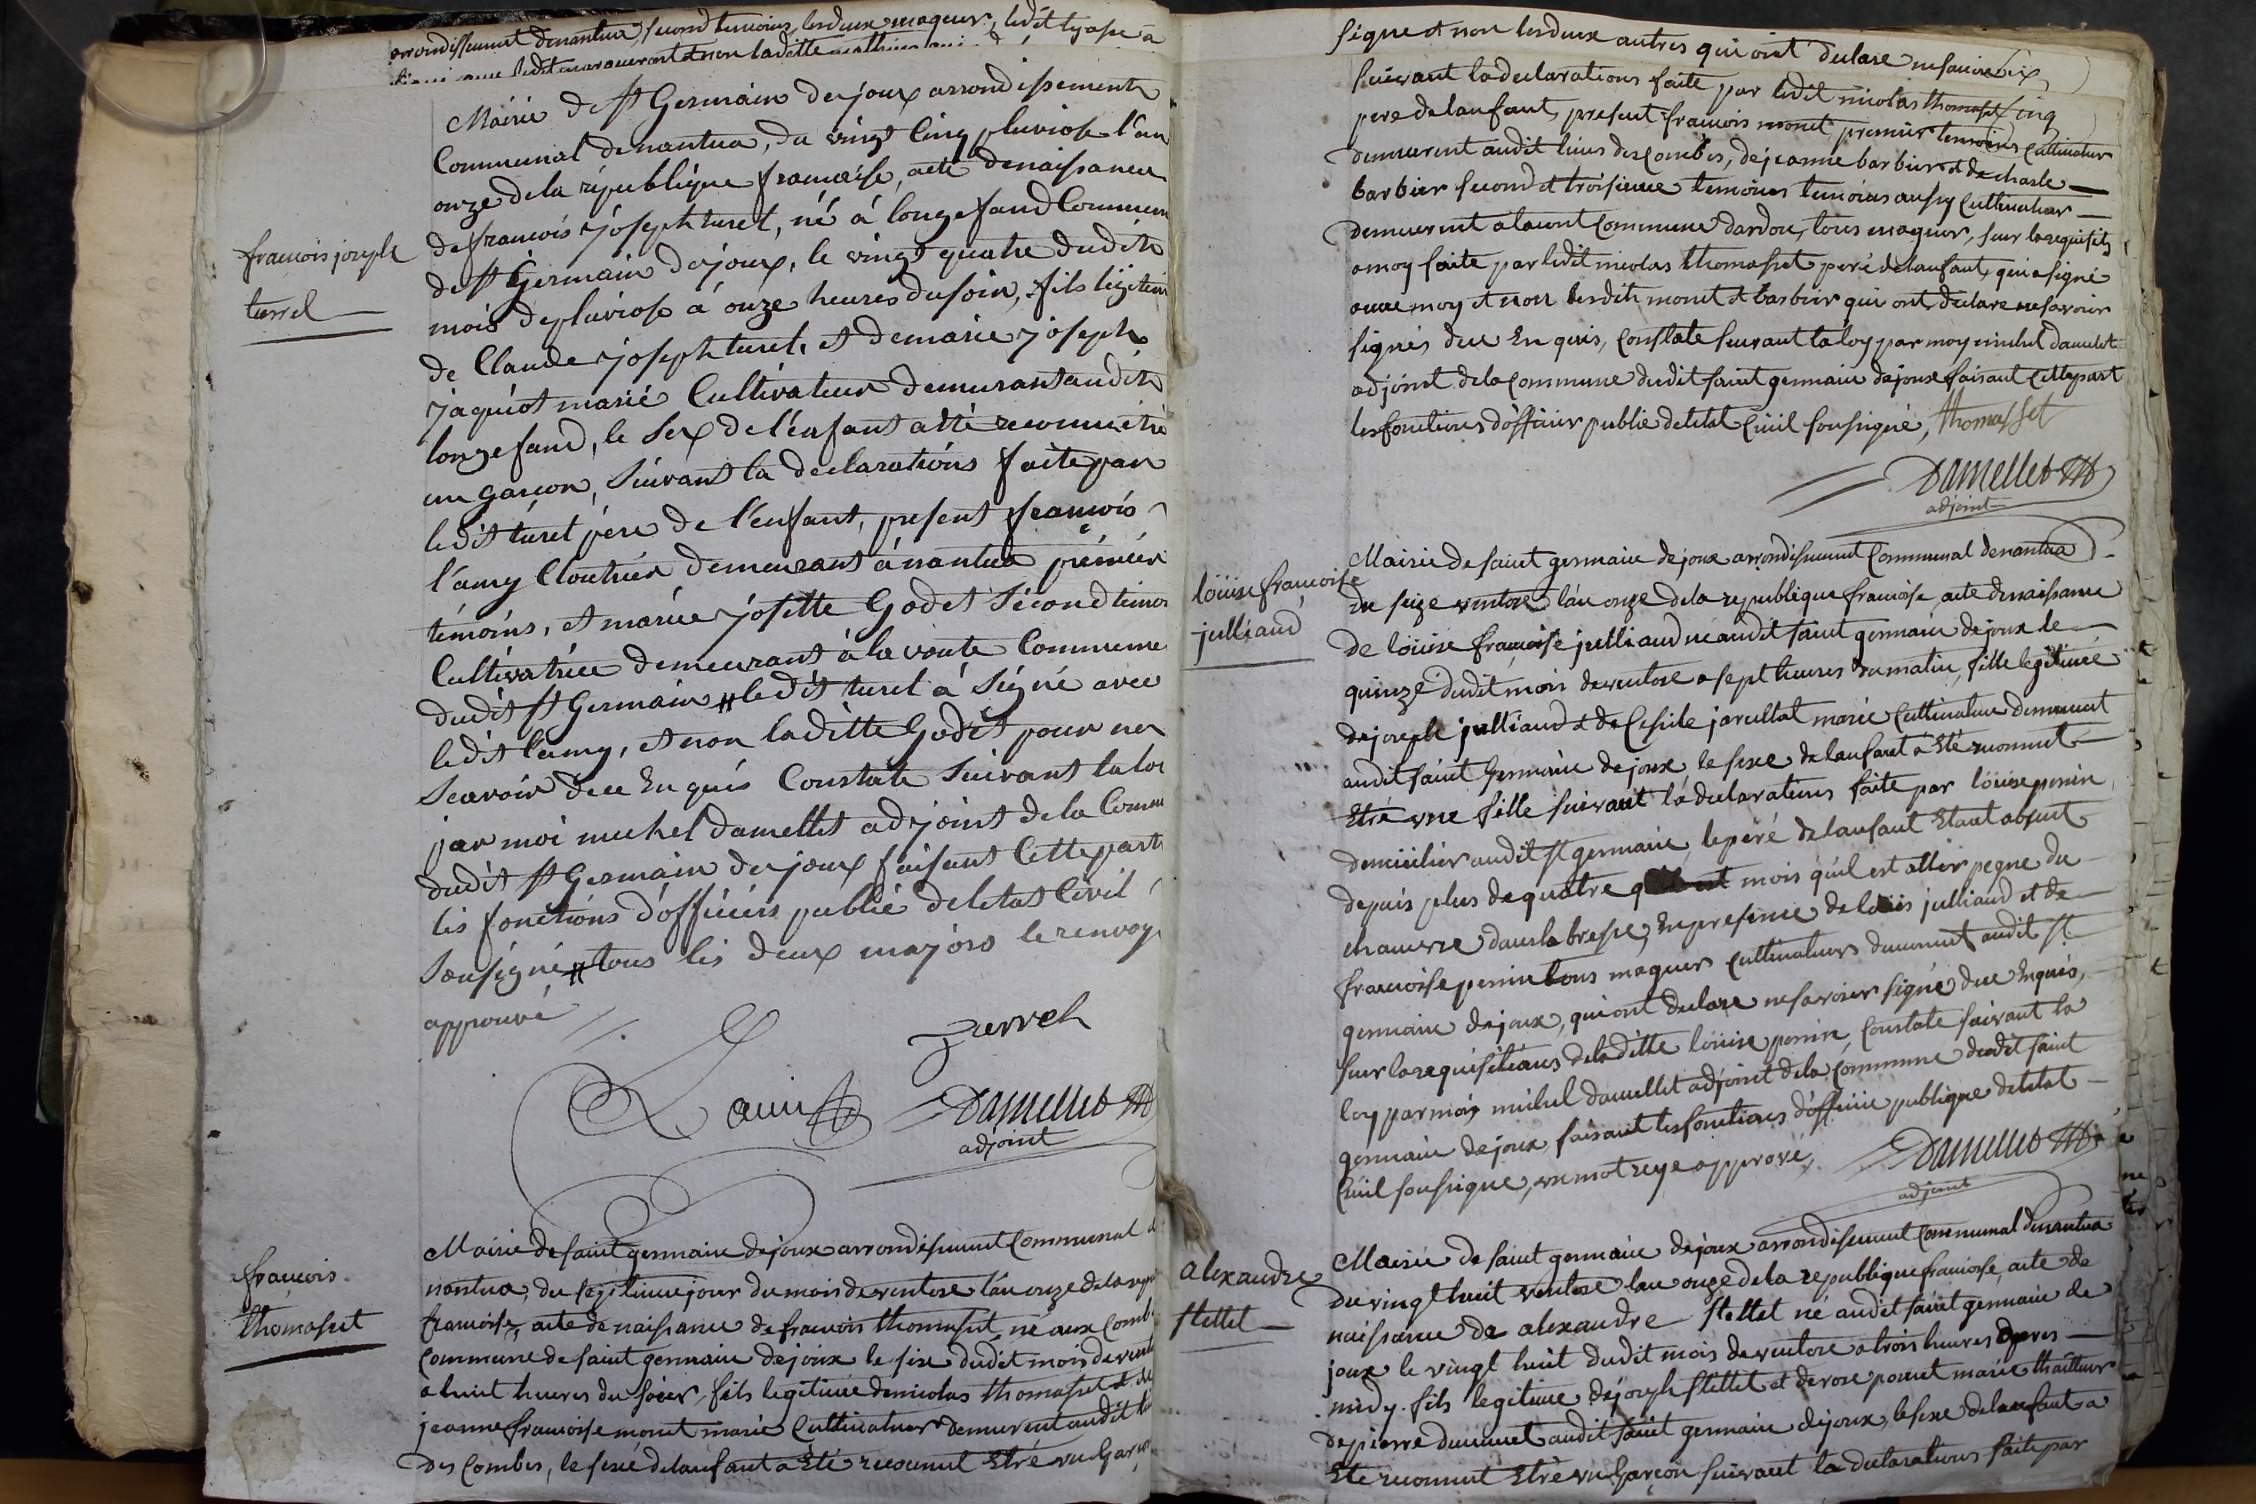 arrondissement denantua, second temoins, lesdeux maqeur, ledit lyase a
Mairie de St Germain dejoux arrondissement
Communal denantua, du vingt Cinq pluviose l'an
onze dela république francoise, acte denaissance
de francois joseph turel, né á longefand Commun
de St Germain dejoux, le vingt quatre dudit
mois depluviose á onze heures dusoir, fils légitim
de Claude joseph turel, et demarie joseph
jaquiot marié Cultivateur demurant audit
longefand, le Sex de l'énfant a été reconnu étré
un garcon, Suivant la declarations faite par
ledit turel pére de l'enfant, present francois
l'amy Cloutier demeurant ánantua prémiér
témoins, et marie josette Godet Sécond témoi
Cultivatrice demeurant á la voute Commune
dudit St Germain # ledit turel á Signé avec
ledit lamy, et non laditte Godet pour ne
Scavoir dece Enquis Constaté Suivant la loi
par moi michel damellet adjoint dela Commu
dudit St Germain dejoux faisant Cette part
les fonctions d'officiers public deletat Civil
Sousigné # tous les deux majors le renvoy
approuvé
francois joseph
turrel
turrel
Lami
Damellet
adjoint
francois
thomasset
Mairie de saint germain dejoux arrondisement Communal de
nantua, du septieme jour du mois de ventose l'an onze dela repu
francoise, acte de naissance de francois thomasset, né aux Comb
Commune de saint germain dejoux le six dudit mois de vento
a huit heures du soir, fils legitime denicolas thomasset et de
jeanne francoise monet marié Cultivateur demeurent audit li
des Combes, le sexe delanfant a Eté reconnut Etré un Garçon
signe et non lesdeux autres qui ont declare
suivant la declarations faite par ledit nicolas thomasset
pere delanfant, present francois monet premier temoins Cultivateur
demeurent audit lieus des Combes, de jeanne barbier et de charle
barbier second et troisieme temoins temoins aussy Cultivateur
demeurent a lavont Commune dardon, tous maqeur, sur la requisit
a moy faite par ledit nicolas thomasset peré delanfant, qui a signé
avec moy et non lesdits monet et barbier qui ont declare ne savoir
signés dece Enquis, Constate suivant la loy par moy michel damelet
adjoint dela Commune dudit saint germain dejoux faisant Cette part
les fonctions d'officier public deletat Civil soussigné, thomasset
Damellet
adjoint
löuise francoise
julliand
Mairie de saint germain dejoux arrondisement Communal denantua
du seize ventose l'an onze dela republique francoise, acte denaissance
de löuise francoise julliand né audit saint germain dejoux le
quinze dudit mois deventose a sept heures du matin, fille legitimé
dejoseph julliand et de Cesile marié Cultivateur demeurent
audit saint Germain dejoux le sexe delanfant a Eté reconnut
Etré une fille suivant la declarations faite par löuise
demicilier audit St germain, le péré delanfant Etant absent
depuis plus de quatre mois qu'il est aller pegne du
chanvre dans la bresse, En presence de löuis julliand et de
francoise tous maqeurs Cultivateurs demeurent audit St
germain dejoux, qui ont declare ne savoir signé dece Enquis,
sur la requisitions de laditte löuise Constate suivant la
loy par moy michel damellet adjoint dela Commune dudit saint
germain dejoux, faisant les fonctions d'officie publique deletat
Civil soussigne, un mot reye apprové,
Damellet
adjoint
alexandre
stettet
Mairie de saint germain dejoux arrondisement Communal denantua
du vingt huit ventose l'an onze dela republique francoise, acte de
naissance de alexandre stettet né audit saint germain de
joux le vingt huit dudit mois deventose a trois heures apres
midy fils legitime dejoseph stettet et de rose ponnet marié
de pierre demeuret audit saint germain dejoux, le sexe delanfant a
Eté reconnut Etré un Garçon suivant la declarations faite par